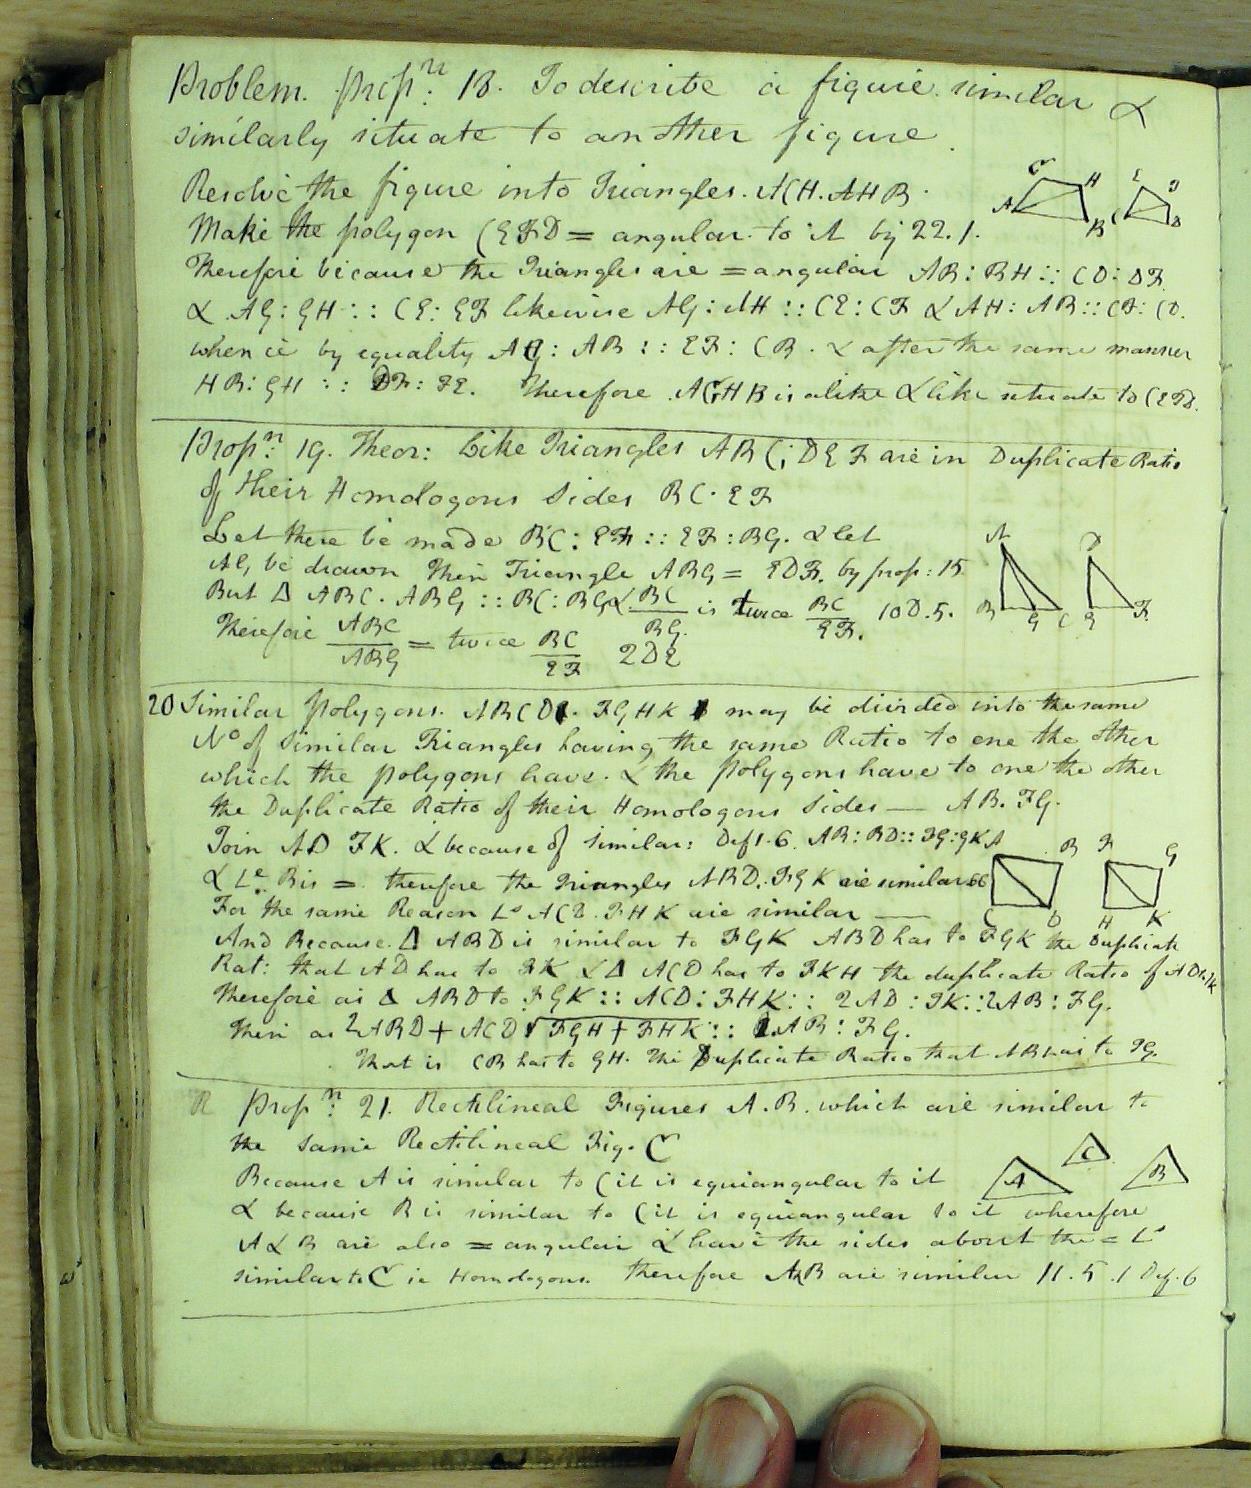 Problem. Propn: 18. To describe a figure similar &
similarly situate to another figure.
Resolve the figure into Triangles. ACH. AHB.
G H E F
A B C D
Make the polygon CEFD = angular to it by 22.1.
Therefore because the Triangles are = angular AB : BH :: CD : DF
& AG : GH :: CE : EF likewise AG : AH :: CE : CF & AH : AB :: CF : CD.
whence by equality AG : AB :: EF : CB. & after the same manner
HB : GH :: DF : FE. Therefore AGHB is alike & like situate to CEFD.
Propn: 19. Theor: Like Triangles ABC; DEF are in Duplicate Ratio
of their Homologous Sides BC. EF
Let there be made BC : EF :: EF : BG. & let
AG, be drawn Then Triangle ABG = EDF. by prop: 15
A D
But Δ ABC. ABG :: BC : BG & BC/BG. is twice BC/EF. 10D.5.
B G C E F
Therefore ABC/ABG = twice BC/EF 2DE
20 Similar Polygons. ABCD. FGHK may be divided into the same
No of Similar Triangles having the same Ratio to one the other
which the polygons have. & the polygons have to one the other
the Duplicate Ratio of their Homologous Sides — AB. FG.
Join AD FK. & because of similar: Def 1.6. AB : BD :: FG : GK
A B F G
& Le. B is = therefore the Triangles ABD. FGK are similar 6.6
C D H K
For the same Reason Ls ACD. FHK are similar —
And Because Δ ABD is similar to FGK ABD has to FGK the Duplicate
Rat: that AD has to FK & Δ ACD has to FKH the duplicate Ratio of AD
Therefore as Δ ABD to FGK :: ACD : FHK :: 2AD : FK :: 2AB : FG.
Then as 2ABD + ACD FGH + FHK :: 2.AB : FG.
That is CB has to GH. The Duplicate Ratio that AB has to FG.
R Propn: 21. Rectilineal Figures A. B. which are similar to
the same Rectilineal Fig. C
Because A is similar to C it is equiangular to it
A C B
& because B is similar to C it is equiangular to it wherefore
A & B are also = angular & have the sides about the = Ls
similar to C ie Homologous. therefore A & B are similar 11.5.1 Def. 6